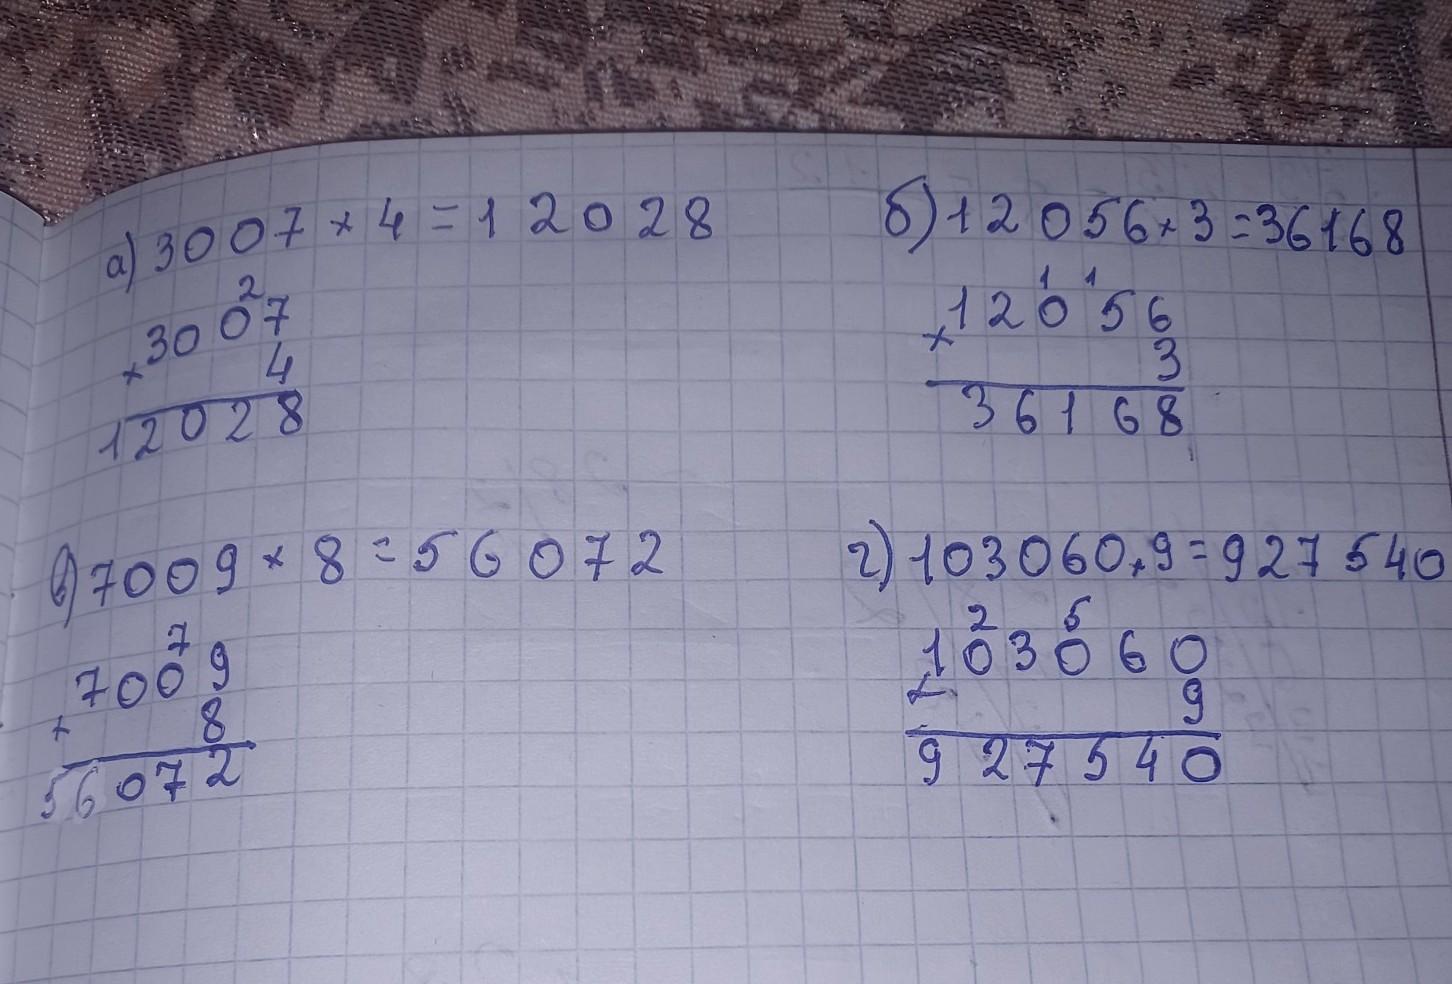 а) 3007 × 4 = 12028
2
3007
× 4
12028
б) 12056 × 3 = 36168
1 1
12056
× 3
36168
в) 7009 × 8 = 56072
7
7009
× 8
56072
г) 103060 × 9 = 927540
2 5
103060
× 9
927540